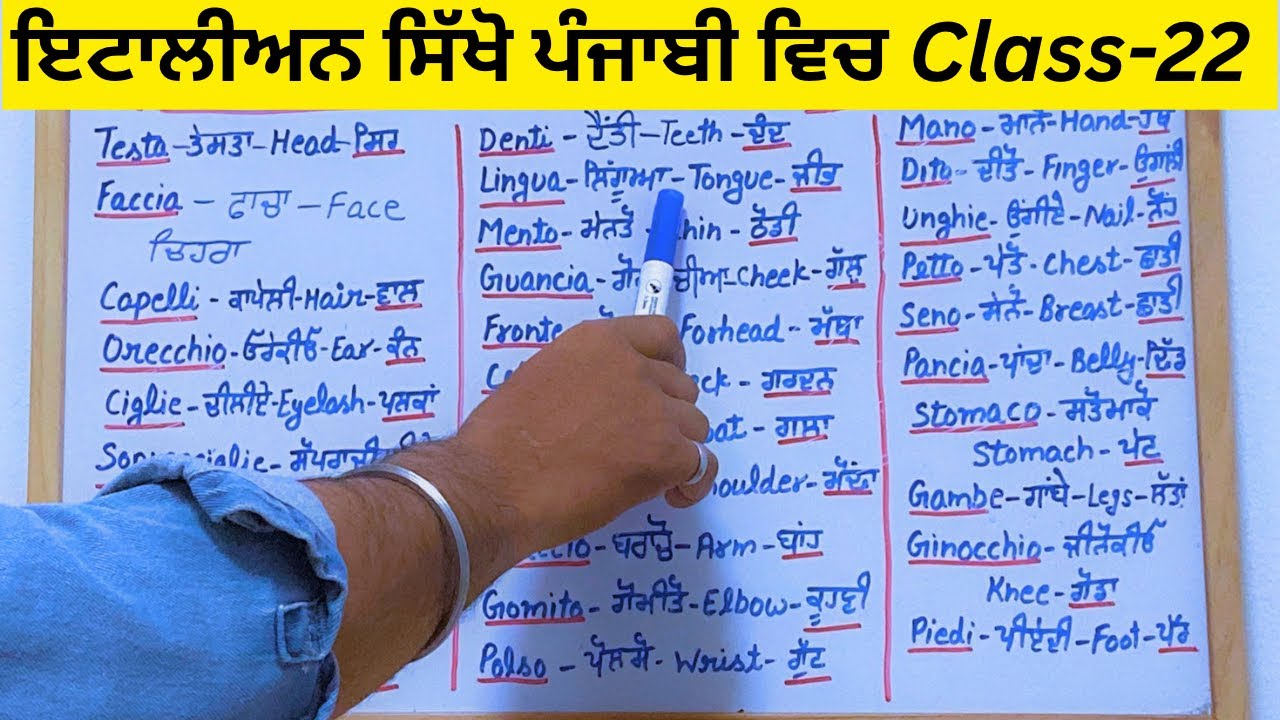 ਇਟਾਲੀਅਨ ਸਿੱਖੋ ਪੰਜਾਬੀ ਵਿਚ Class-22
Testa - ਤੇਸਤਾ - Head - ਸਿਰ
Faccia - ਫਾਚਾ - Face
ਚਿਹਰਾ
Capelli - ਕਾਪੇਲੀ - Hair - ਵਾਲ
Orecchio - ਓਰੇਕੀਓ - Ear - ਕੰਨ
Ciglie - ਚੀਲੀਏ - Eyelash - ਪਲਕਾਂ
Denti - ਦੈਂਤੀ - Teeth - ਦੰਦ
Lingua - ਲਿੰਗੂਆ - Tongue - ਜੀਭ
Mento - ਮੇਨਤੋ - hin - ਠੋਡੀ
Guancia - ਗੋ ਚੀਆ - Cheek - ਗੱਲ੍ਹ
Fronte Forhead - ਮੱਥਾ
ck - ਗਰਦਨ
oat - ਗਲਾ
houlder - ਮੋਢਾ
ccio - ਬਰਾਚੋ - Arm - ਬਾਂਹ
Gomito - ਗੋਮੀਤੋ - Elbow - ਕੂਹਣੀ
Polso - ਪੋਲਸੋ - Wrist - ਗੁੱਟ
Mano - ਮਾਨੋ - Hand - ਹੱਥ
Dito - ਦੀਤੋ - Finger - ਉਂਗਲੀ
Unghie - ਉਂਗੀਏ - Nail - ਨੌਂਹ
Petto - ਪੇਤੋ - Chest - ਛਾਤੀ
Seno - ਸੇਨੋ - Breast - ਛਾਤੀ
Pancia - ਪਾਂਚਾ - Belly - ਢਿੱਡ
Stomaco - ਸਤੋਮਾਕੋ
Stomach - ਪੇਟ
Gambe - ਗਾਂਬੇ - Legs - ਲੱਤਾਂ
Ginocchio - ਜੀਨੋਕੀਓ
Knee - ਗੋਡਾ
Piedi - ਪੀਏਦੀ - Foot - ਪੈਰ